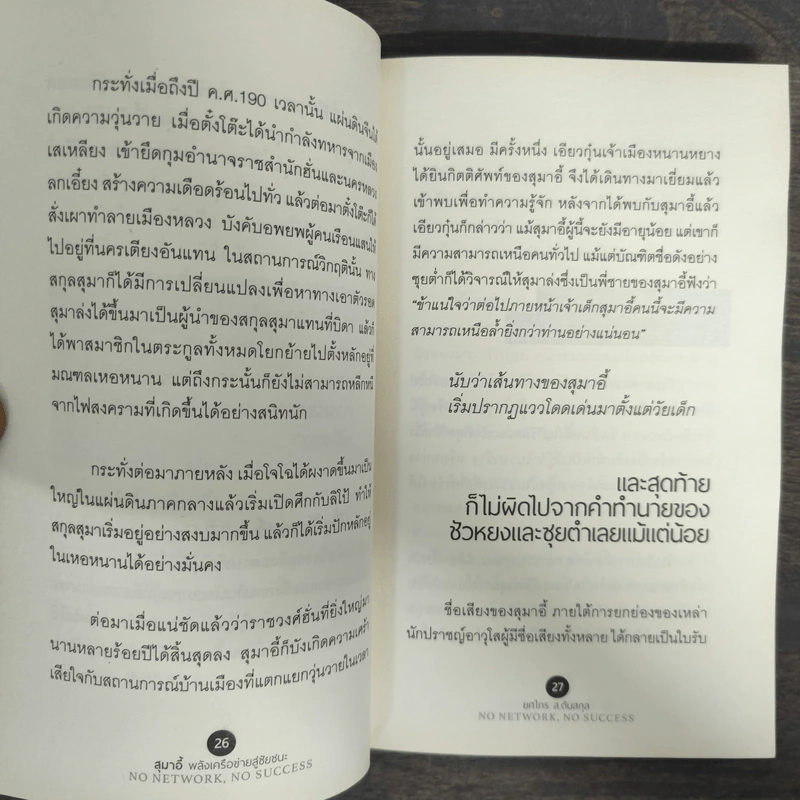 กระทั่งเมื่อถึงปี ค.ศ.190 เวลานั้น แผ่นดินจีนได้
เกิดความวุ่นวาย เมื่อตั๋งโต๊ะได้นำกำลังทหารจากเมือง
เสเหลียง เข้ายึดกุมอำนาจราชสำนักฮั่นและนครหลวง
ลกเอี๋ยง สร้างความเดือดร้อนไปทั่ว แล้วต่อมาตั๋งโต๊ะก็ได้
สั่งเผาทำลายเมืองหลวง บังคับอพยพผู้คนเรือนแสนให้
ไปอยู่ที่นครเตียงอันแทน ในสถานการณ์วิกฤตินั้น ทาง
สกุลสุมาก็ได้มีการเปลี่ยนแปลงเพื่อหาทางเอาตัวรอด
สุมาล่งได้ขึ้นมาเป็นผู้นำของสกุลสุมาแทนที่บิดา แล้วก็
ได้พาสมาชิกในตระกูลทั้งหมดโยกย้ายไปตั้งหลักอยู่ที่
มณฑลเหอหนาน แต่ถึงกระนั้นก็ยังไม่สามารถหลีกหนี
จากไฟสงครามที่เกิดขึ้นได้อย่างสนิทนัก
กระทั่งต่อมาภายหลัง เมื่อโจโฉได้ผงาดขึ้นมาเป็น
ใหญ่ในแผ่นดินภาคกลางแล้วเริ่มเปิดศึกกับลิโป้ ทำให้
สกุลสุมาเริ่มอยู่อย่างสงบมากขึ้น แล้วก็ได้เริ่มปักหลักอยู่
ในเหอหนานได้อย่างมั่นคง
ต่อมาเมื่อแน่ชัดแล้วว่าราชวงศ์ฮั่นที่ยิ่งใหญ่มา
นานหลายร้อยปีได้สิ้นสุดลง สุมาอี้ก็บังเกิดความเศร้า
เสียใจกับสถานการณ์บ้านเมืองที่แตกแยกวุ่นวายในเวลา
26
สุมาอี้ พลังเครือข่ายสู่ชัยชนะ
NO NETWORK, NO SUCCESS
นั้นอยู่เสมอ มีครั้งหนึ่ง เอียวกุ๋นเจ้าเมืองหนานหยาง
ได้ยินกิตติศัพท์ของสุมาอี้ จึงได้เดินทางมาเยี่ยมแล้ว
เข้าพบเพื่อทำความรู้จัก หลังจากได้พบกับสุมาอี้แล้ว
เอียวกุ๋นก็กล่าวว่า แม้สุมาอี้ผู้นี้จะยังมีอายุน้อย แต่เขาก็
มีความสามารถเหนือคนทั่วไป แม้แต่บัณฑิตชื่อดังอย่าง
ซุยต่ำก็ได้วิจารณ์ให้สุมาล่งซึ่งเป็นพี่ชายของสุมาอี้ฟังว่า
“ข้าแน่ใจว่าต่อไปภายหน้าเจ้าเด็กสุมาอี้คนนี้จะมีความ
สามารถเหนือล้ำยิ่งกว่าท่านอย่างแน่นอน”
นับว่าเส้นทางของสุมาอี้
เริ่มปรากฏแววโดดเด่นมาตั้งแต่วัยเด็ก
และสุดท้าย
ก็ไม่ผิดไปจากคำทำนายของ
ชัวหยงและซุยต่ำเลยแม้แต่น้อย
ชื่อเสียงของสุมาอี้ ภายใต้การยกย่องของเหล่า
นักปราชญ์อาวุโสผู้มีชื่อเสียงทั้งหลาย ได้กลายเป็นใบรับ
27
ยศไกร ส.ตันสกุล
NO NETWORK, NO SUCCESS